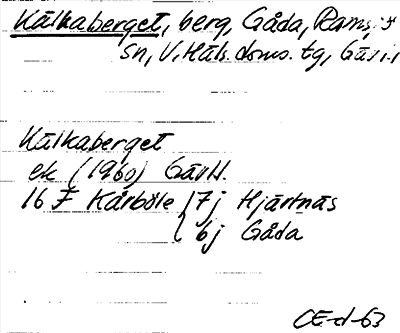 Kälkaberget, berg, Gåda, Ramsjö
sn, V. Häls. doms. tg, Gävl.
Kälkaberget
ek (1960) Gävl.
16 F Kårböle 7j Hjärtnäs
6j Gåda
CE-d-63